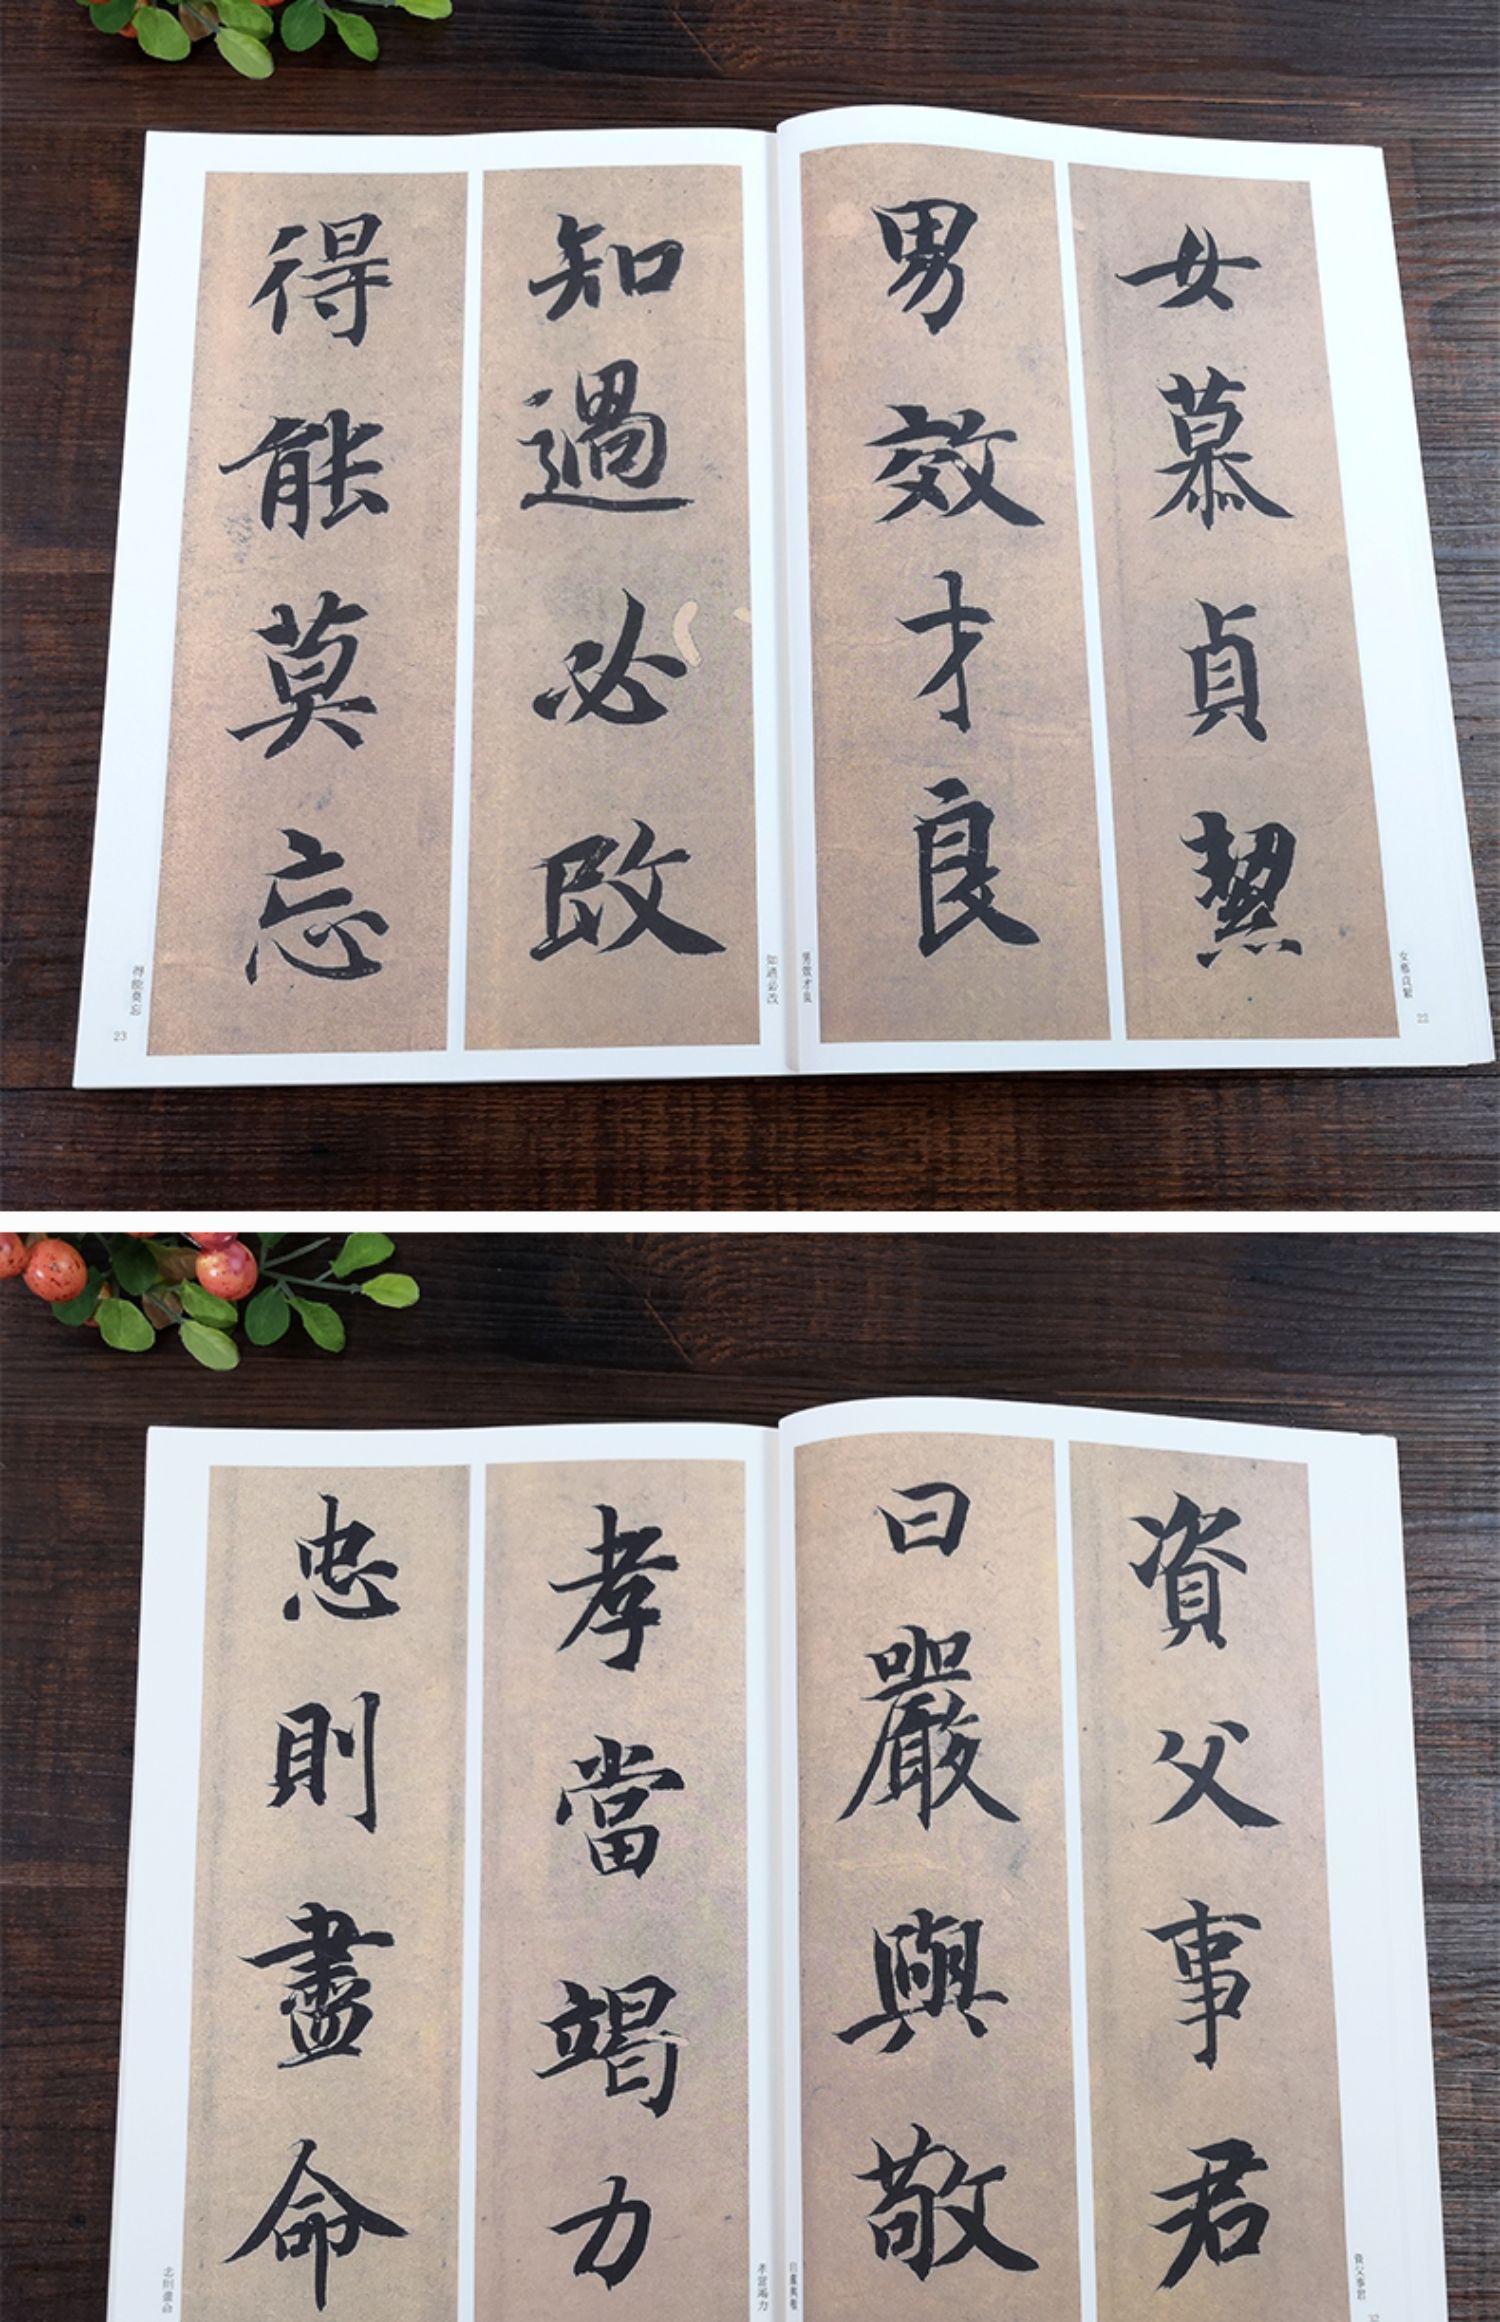 女慕貞絜
男效才良
知過必改
得能莫忘
女慕貞絜
22
男效才良
知過必改
得能莫忘
23
資父事君
曰嚴與敬
孝當竭力
忠則盡命
資父事君
曰嚴與敬
孝當竭力
忠則盡命